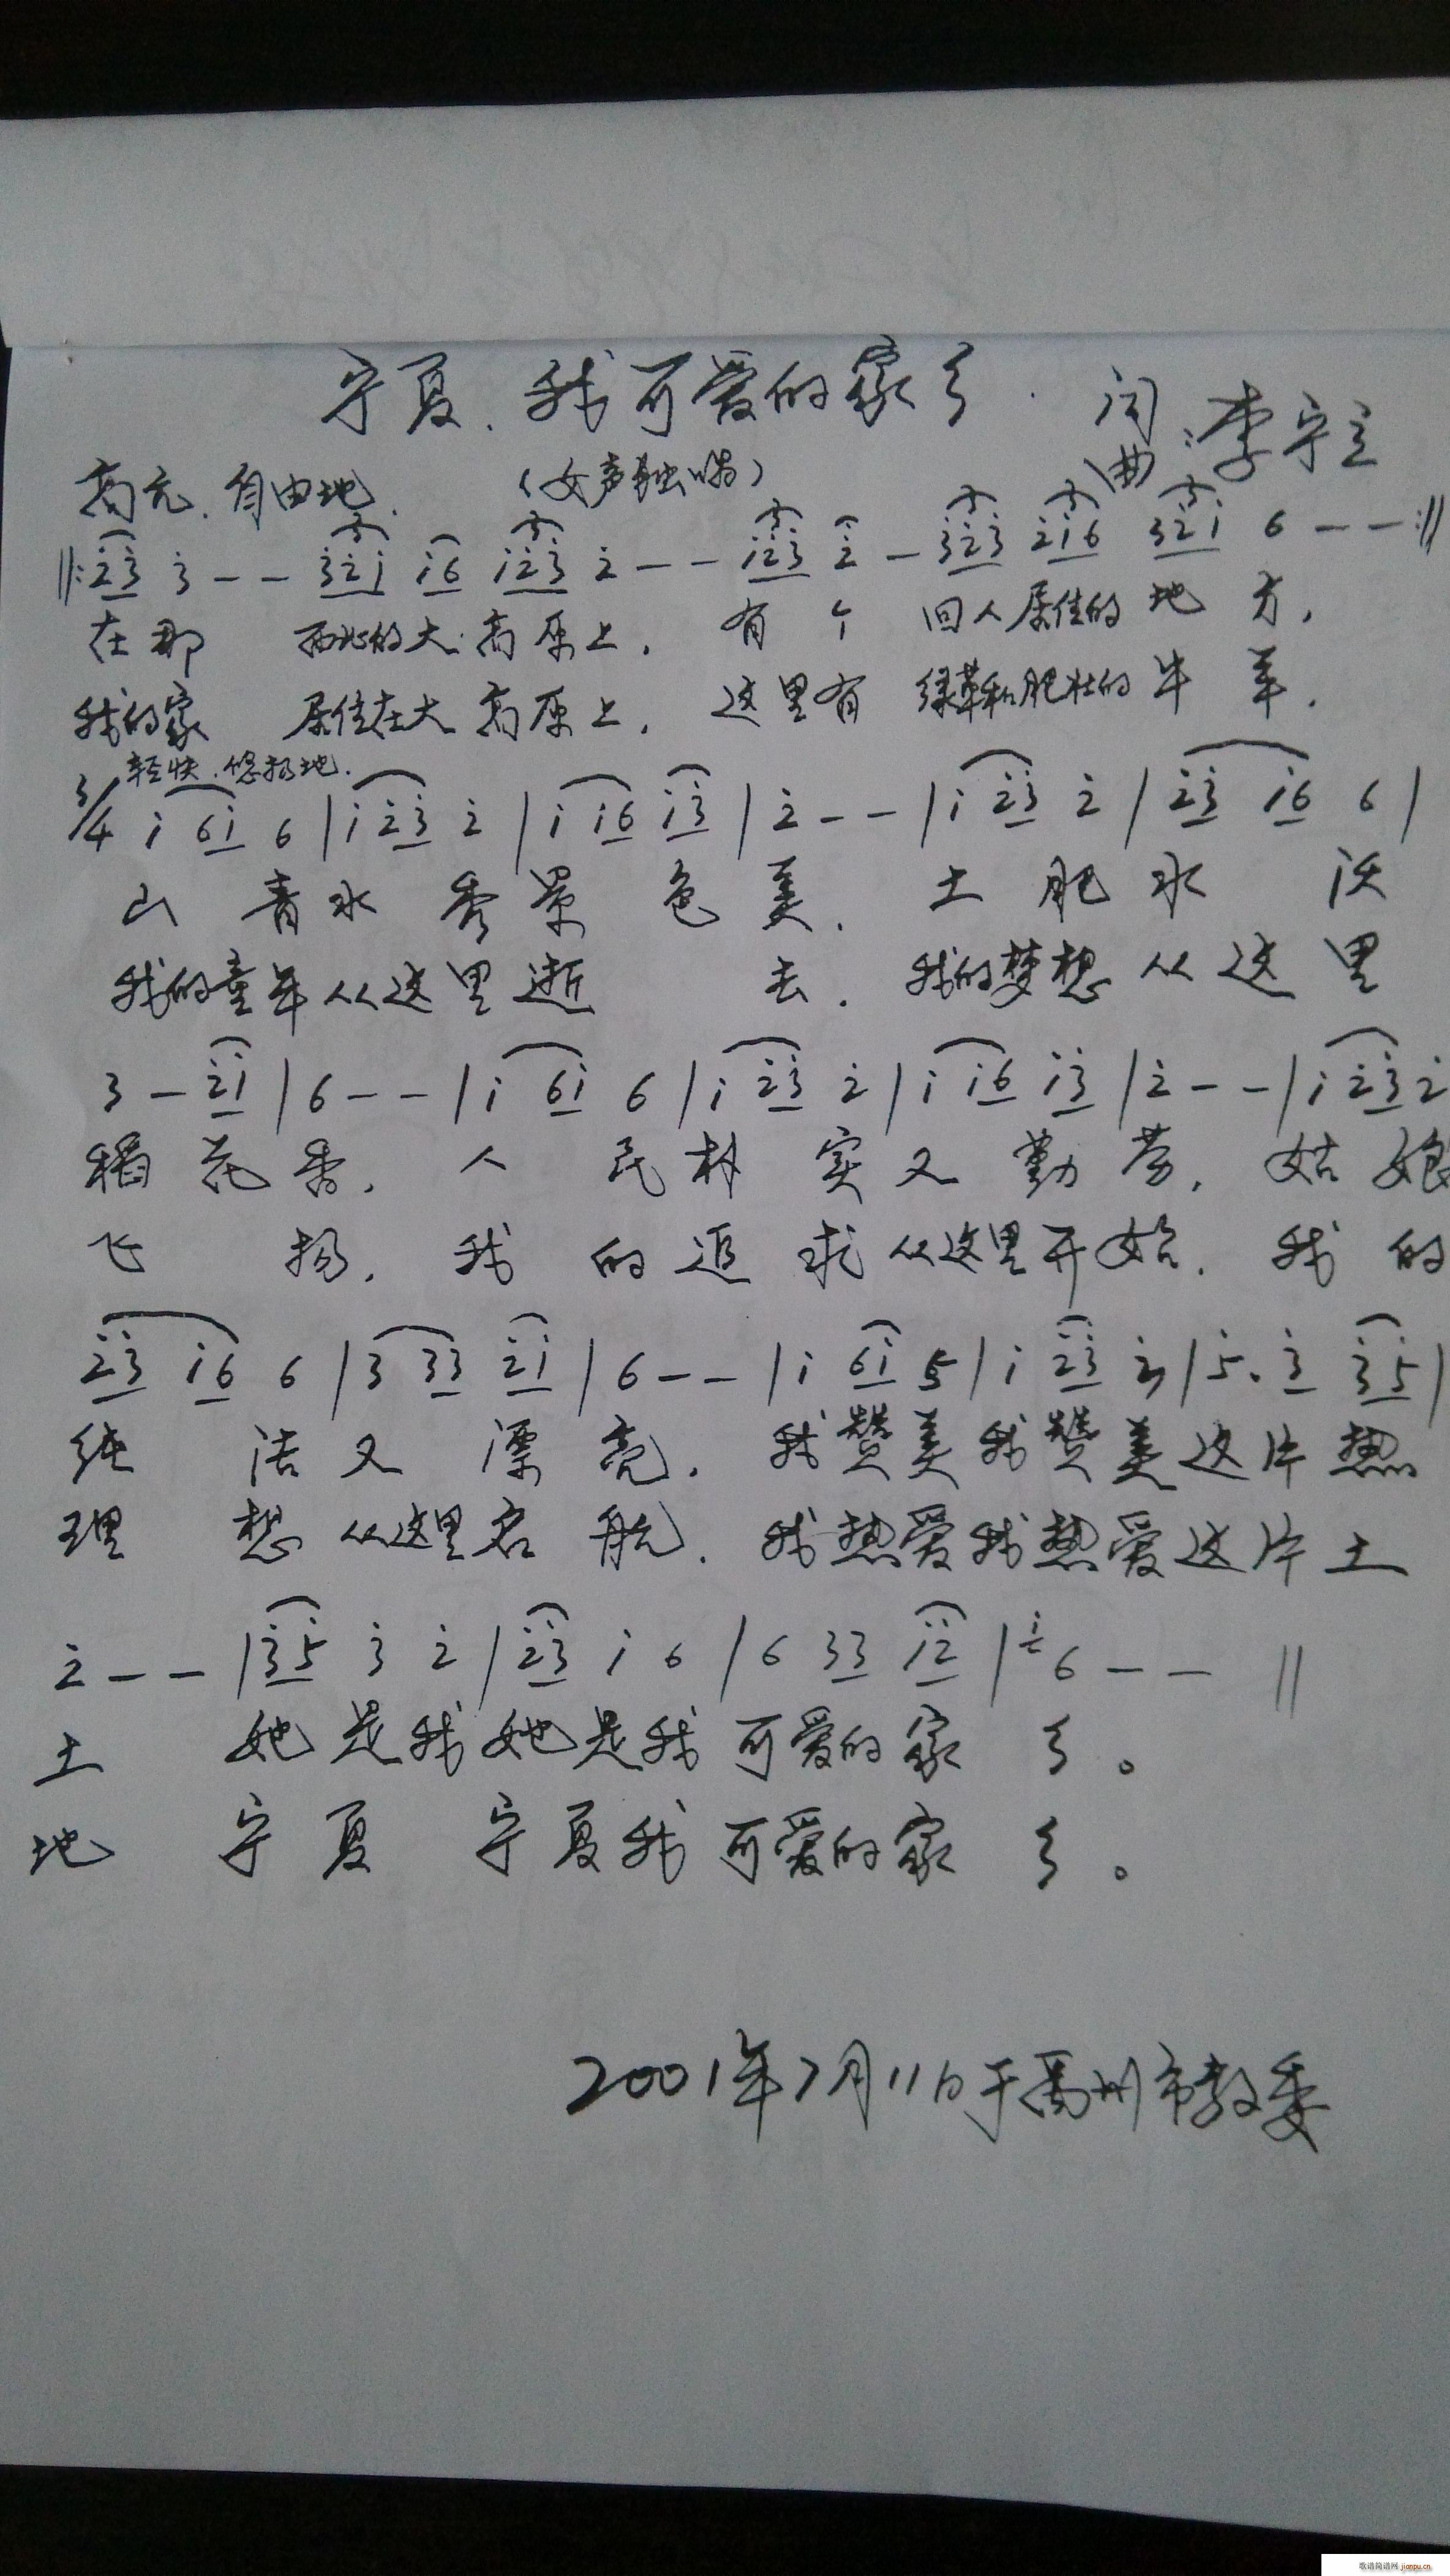 宁夏、我可爱的家乡. 词曲:李宁立
高亢、自由地. (女声独唱)
‖: 2̇3̇ 3̇ — — 3̇2̇1̇ 1̇6 1̇2̇3̇ 2̇ — — 1̇2̇3̇ 2̇ — 3̇2̇3̇ 2̇1̇6 3̇2̇1̇ 6 — — :‖
在那 西北的大高原上, 有个 回人居住的地方,
我的家 居住在大高原上, 这里有 绿草和肥壮的牛羊.
轻快、悠扬地.
3/4 1̇ 61̇ 6 | 1̇ 2̇3̇ 2̇ | 1̇ 1̇6 1̇3̇ | 2̇ — — | 1̇ 2̇3̇ 2̇ | 2̇3̇ 1̇6 6 |
山青水秀景色美, 土肥水沃
我的童年从这里逝去. 我的梦想从这里
3 — 2̇1̇ | 6 — — | 1̇ 61̇ 6 | 1̇ 2̇3̇ 2̇ | 1̇ 1̇6 1̇3̇ | 2̇ — — | 1̇ 2̇3̇ 2̇
稻花香, 人民朴实又勤劳, 姑娘
飞扬, 我的追求从这里开始. 我的
2̇3̇ 1̇6 6 | 3 33 2̇1̇ | 6 — — | 1̇ 61̇ 5 | 1̇ 2̇3̇ 2̇ | 5̇. 3̇ 3̇5̇ |
纯洁又漂亮, 我赞美我赞美这片热
理想从这里启航. 我热爱我热爱这片土
2̇ — — | 3̇5̇ 3̇ 2̇ | 2̇3̇ 1̇ 6 | 6 33 1̇2̇ | 1̇6 — — ‖
土 她是我她是我可爱的家乡。
地 宁夏 宁夏我可爱的家乡。
2001年7月11日于禹州市教委
歌谱简谱网 jianpu.cn